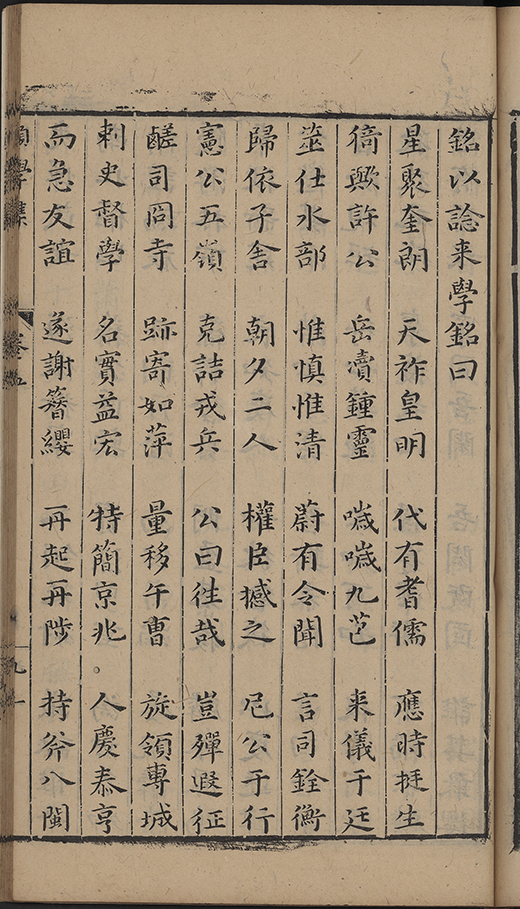 銘以諗来學銘曰
星聚奎朗　天祚皇明　代有耆儒　應時挺生
猗歟許公　岳瀆鍾靈　噦噦九苞　来儀于廷
筮仕水部　惟慎惟清　蔚有令聞　言司銓衡
歸依子舍　朝夕二人　權臣撼之　尼公于行
憲公五嶺　克詰戎兵　公曰徃哉　豈殫遐征
鹺司冏寺　跡寄如萍　量移午曹　旋領專城
剌史督學　名實益宏　特簡京兆　人慶泰亨
而急友誼　遂謝簪纓　再起再陟　持斧八閩
學集　卷五